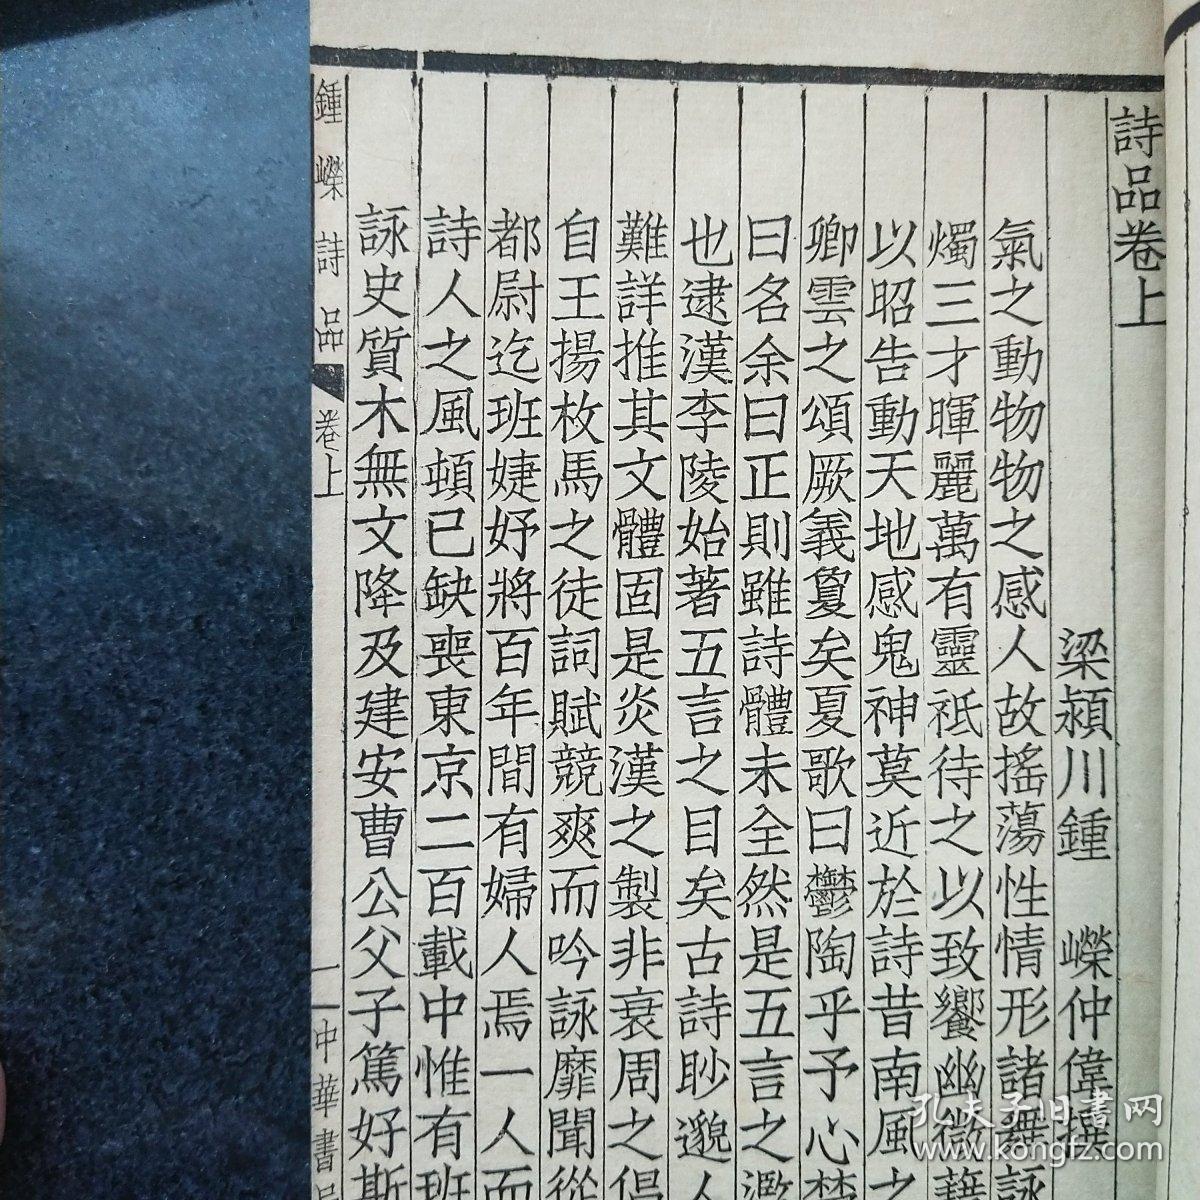 詩品卷上
梁潁川鍾　嶸仲偉撰
氣之動物物之感人故搖蕩性情形諸舞詠
燭三才暉麗萬有靈祗待之以致饗幽微藉
以昭告動天地感鬼神莫近於詩昔南風之
卿雲之頌厥義敻矣夏歌曰鬱陶乎予心楚
曰名余曰正則雖詩體未全然是五言之濫
也逮漢李陵始著五言之目矣古詩眇邈人
難詳推其文體固是炎漢之製非衰周之倡
自王揚枚馬之徒詞賦競爽而吟詠靡聞從
都尉迄班婕妤將百年間有婦人焉一人而
詩人之風頓已缺喪東京二百載中惟有班
詠史質木無文降及建安曹公父子篤好斯
鍾嶸詩品 卷上 一 中華書
孔夫子旧書网
www.kongfz.com